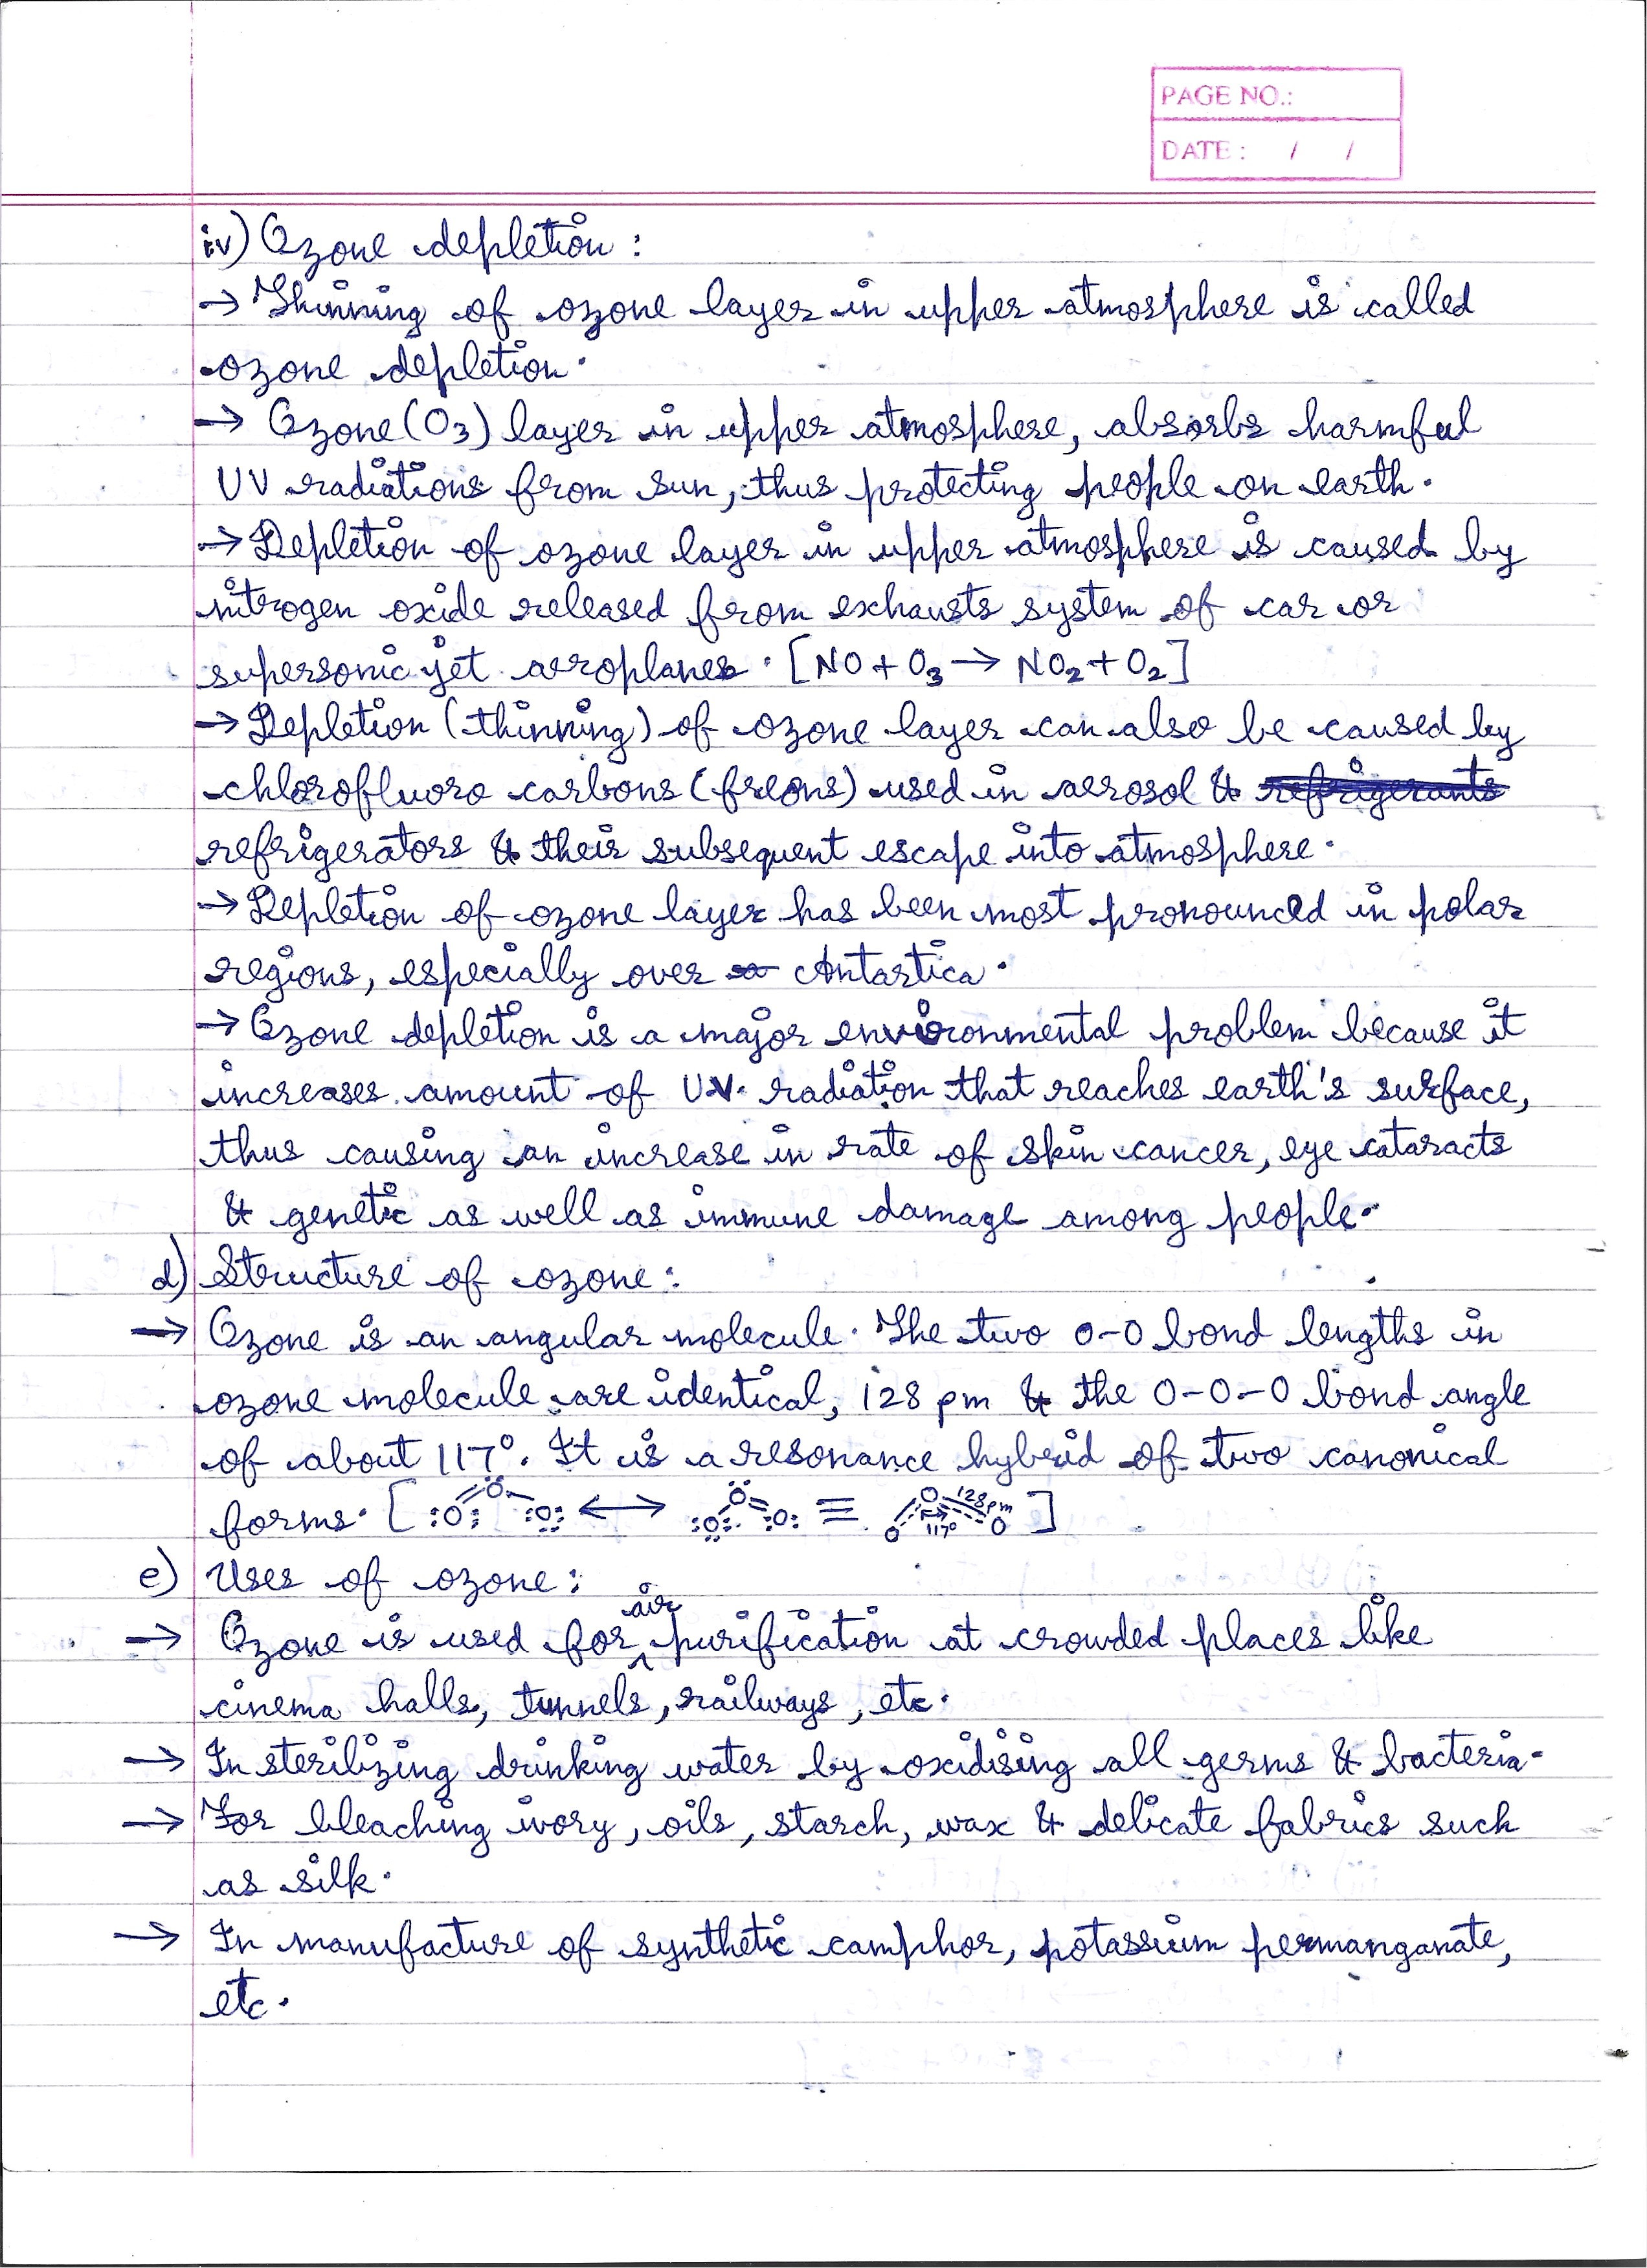 PAGE NO.:
DATE : / /
iv) Ozone depletion :
→ Thinning of ozone layer in upper atmosphere is called
ozone depletion.
→ Ozone (O₃) layer in upper atmosphere, absorbs harmful
UV radiations from sun, thus protecting people on earth.
→ Depletion of ozone layer in upper atmosphere is caused by
nitrogen oxide released from exhausts system of car or
supersonic jet aeroplanes. [NO + O₃ → NO₂ + O₂]
→ Depletion (thinning) of ozone layer can also be caused by
chlorofluoro carbons (freons) used in aerosol & refrigerants
refrigerators & their subsequent escape into atmosphere.
→ Depletion of ozone layer has been most pronounced in polar
regions, especially over Antartica.
→ Ozone depletion is a major environmental problem because it
increases amount of U.V. radiation that reaches earth's surface,
thus causing an increase in rate of skin cancer, eye cataracts
& genetic as well as immune damage among people.
d) Structure of ozone :
→ Ozone is an angular molecule. The two O-O bond lengths in
ozone molecule are identical, 128 pm & the O-O-O bond angle
of about 117°. It is a resonance hybrid of two canonical
forms. [ :O: O :O: ⟷ :O: O :O: ≡ O O O 128pm 117° ]
e) Uses of ozone :
→ Ozone is used for air purification at crowded places like
cinema halls, tunnels, railways, etc.
→ In sterilizing drinking water by oxidising all germs & bacteria.
→ For bleaching ivory, oils, starch, wax & delicate fabrics such
as silk.
→ In manufacture of synthetic camphor, potassium permanganate,
etc.